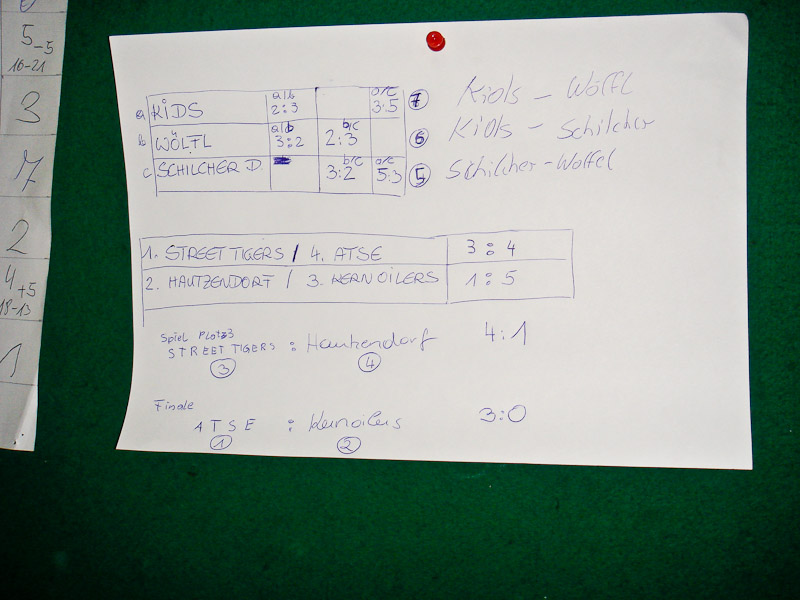 5 -5
16-21
3
7
2
4 +5
18-13
1
a/b a/c
a KIDS 2:3 3:5 7
Kids - Wölfl
a/b b/c
b WÖLTL 3:2 2:3 6
Kids - Schilcher
b/c a/c
c SCHILCHER D. 3:2 5:3 5
Schilcher - Wölfel
1. STREET TIGERS / 4. ATSE 3:4
2. HAUTZENDORT / 3. KERNOILERS 1:5
Spiel Platz 3
STREET TIGERS : Hautzendorf 4:1
3 4
Finale
ATSE : Kernoilers 3:0
1 2